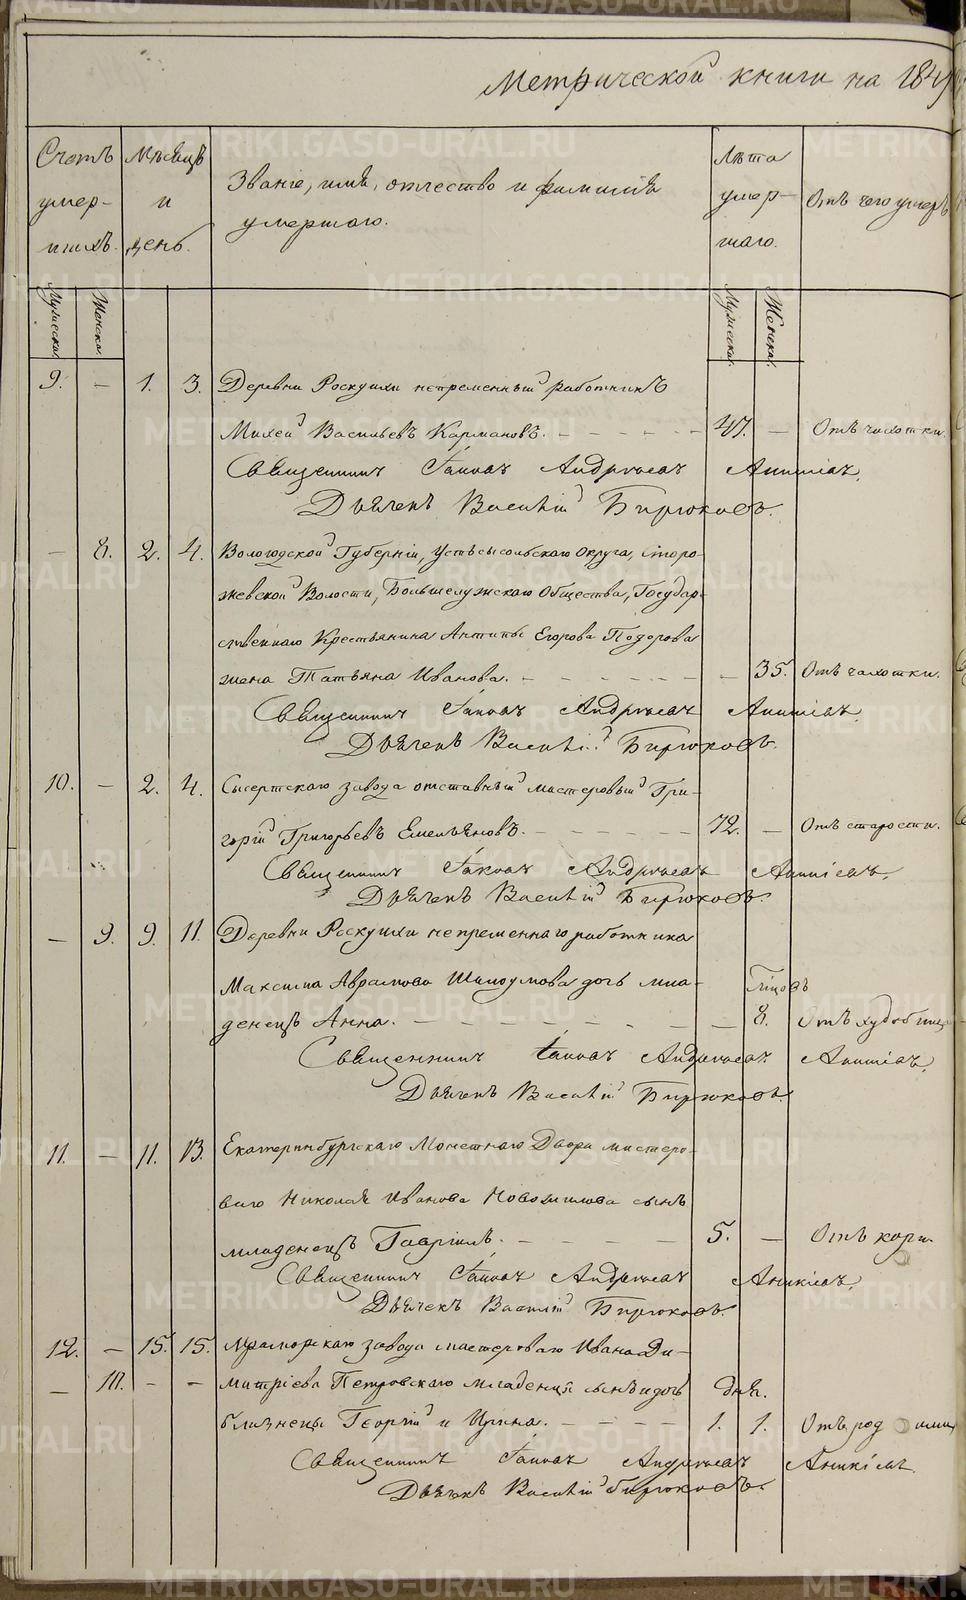 Метрической книги на 184
Счетъ умер- шихъ.
Мѣсяцъ и день.
Званіе, имя, отчество и фамилія умершаго.
Лѣта умер- шаго.
Отъ чего умеръ
Мужеска.
Женска.
Мужеска.
Женска.
9. — 1. 3. Деревни Роскуихи непременный работникъ
Михей Васильевъ Кармановъ. — 47. — Отъ чахотки.
Священникъ Іаковъ Андреевъ Аникіевъ.
Дьячекъ Василій Бирюковъ.
— 8. 2. 4. Вологодской Губерніи, Устьсысольскаго Округа, Сторо-
жевской Волости, Большелужскаго Общества, Государ-
ственнаго Крестьянина Антипы Егорова Подорова
жена Татьяна Иванова. — 35. Отъ чахотки.
Священникъ Іаковъ Андреевъ Аникіевъ.
Дьячекъ Василій Бирюковъ.
10. — 2. 4. Сысертскаго завода отставный мастеровый Гри-
горій Григорьевъ Емельяновъ. — 72. — Отъ старости.
Священникъ Іаковъ Андреевъ Аникіевъ.
Дьячекъ Василій Бирюковъ.
— 9. 9. 11. Деревни Роскуихи непременнаго работника
Максима Аврамова дочь мла-
денецъ Анна. — 8. Отъ
Священникъ Іаковъ Андреевъ Аникіевъ.
Дьячекъ Василій Бирюковъ.
11. — 11. 13. Екатеринбургскаго Монетнаго Двора мастеро-
ваго Николая Иванова Новожилова сынъ
младенецъ Гавріилъ. — 5. — Отъ кори.
Священникъ Іаковъ Андреевъ Аникіевъ.
Дьячекъ Василій Бирюковъ.
12. — 15. 15. Мраморскаго завода мастероваго Ивана Ди-
— 10. — — митріева Петровскаго младенцы сынъ и дочь дня.
близнецы Георгій и Ирина. — 1. 1. Отъ род
Священникъ Іаковъ Андреевъ Аникіевъ.
Дьячекъ Василій Бирюковъ.
METRIKI.GASO-URAL.RU